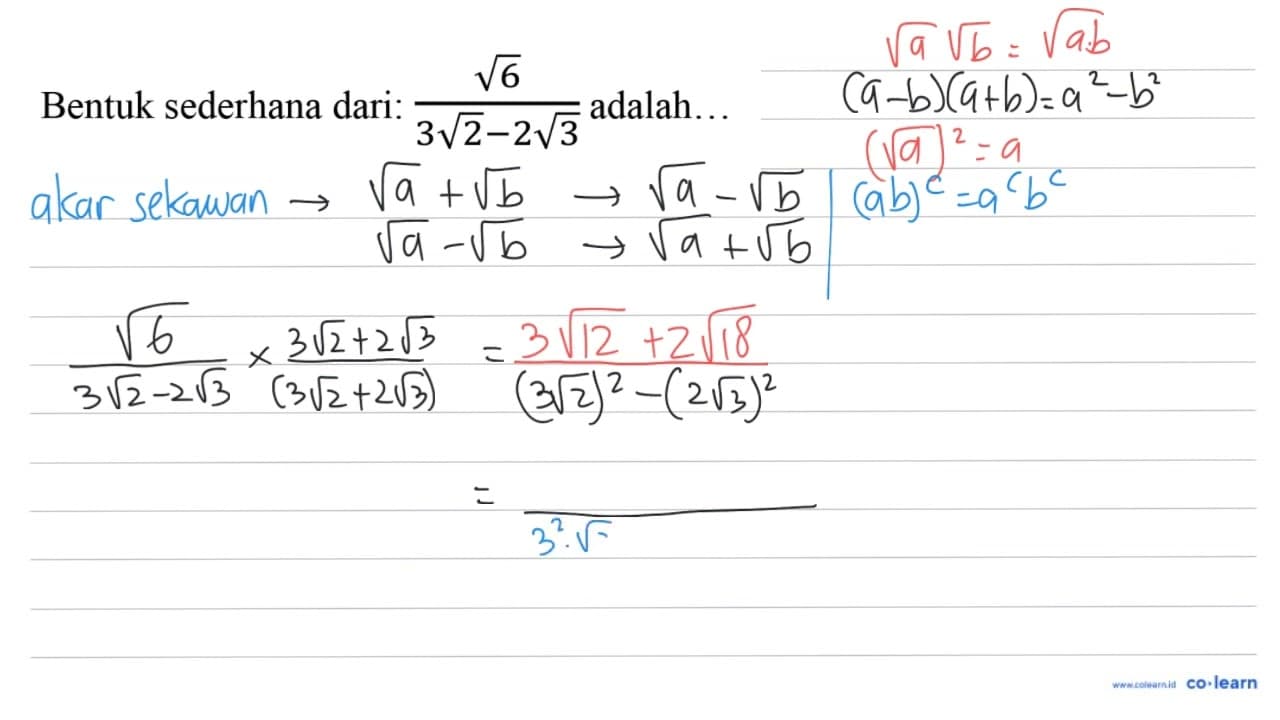 √a √b = √a.b
Bentuk sederhana dari: √6 / (3√2−2√3) adalah...
(a−b)(a+b)=a²−b²
(√a)² = a
akar sekawan → √a + √b → √a − √b
(ab)ᶜ = aᶜbᶜ
√a − √b → √a + √b
√6 / (3√2−2√3) × (3√2+2√3) / (3√2+2√3) = (3√12 + 2√18) / ((3√2)² − (2√3)²)
= / 3².√
www.colearn.id co·learn